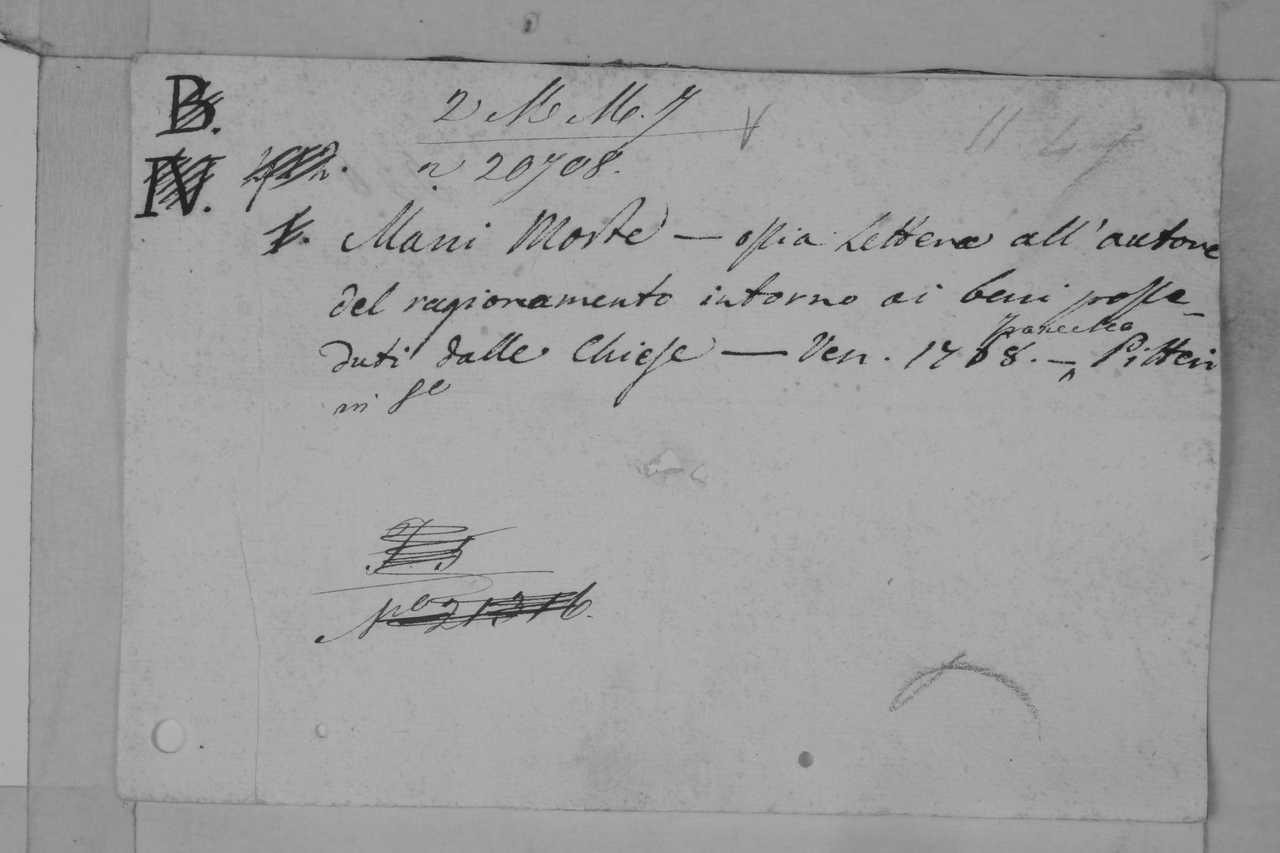 B.
2 M M. 7
IV.
n 20708.
1. Mani Morte — ossia Lettera all'autore
del ragionamento intorno ai beni posse-
duti dalle Chiese — Ven. 1768. — Francesco Pitteri
in 8º
Nº 21316.